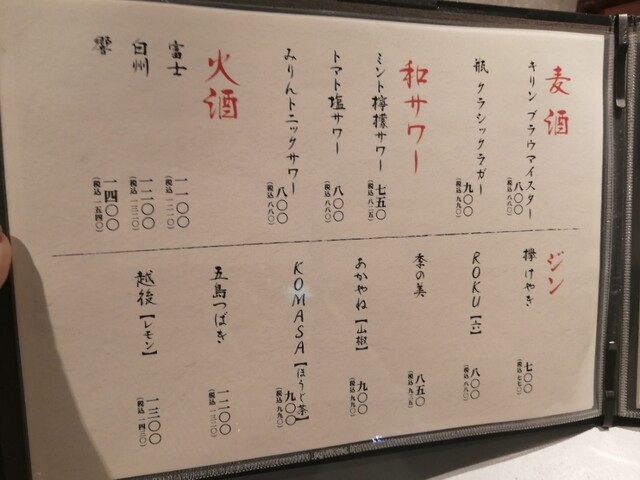 麦酒
キリン ブラウマイスター
八〇〇
(税込 八八〇)
瓶 クラシックラガー
九〇〇
(税込 九九〇)
和サワー
ミント檸檬サワー
七五〇
(税込 八二五)
トマト塩サワー
八〇〇
(税込 八八〇)
みりんトニックサワー
八〇〇
(税込 八八〇)
火酒
富士
一一〇〇
(税込 一二一〇)
白州
一二〇〇
(税込 一三二〇)
響
一四〇〇
(税込 一五四〇)
ジン
欅 けやき
七〇〇
(税込 七七〇)
ROKU【六】
八〇〇
(税込 八八〇)
季の美
八五〇
(税込 九三五)
あかやね【山椒】
九〇〇
(税込 九九〇)
KOMASA【ほうじ茶】
九〇〇
(税込 九九〇)
五島つばき
一二〇〇
(税込 一三二〇)
越後【レモン】
一三〇〇
(税込 一四三〇)